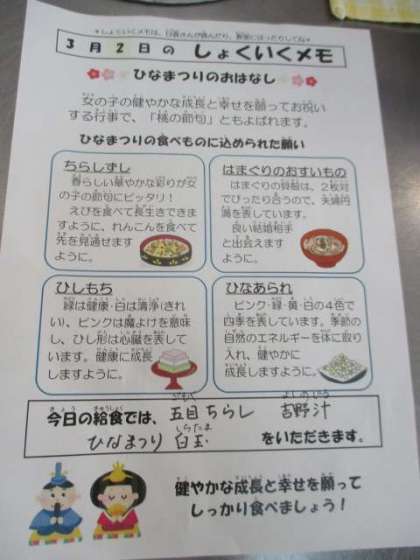 ＊しょくいくメモは、日直さんが読んだら、教室にはったりしてね＊
3月2日の しょくいくメモ
ひなまつりのおはなし
女の子の健やかな成長と幸せを願ってお祝い
する行事で、「桃の節句」ともよばれます。
ひなまつりの食べものに込められた願い
ちらしずし
春らしい華やかな彩りが女
の子の節句にピッタリ！
えびを食べて長生きできま
すように、れんこんを食べて
先を見通せます
ように。
はまぐりのおすいもの
はまぐりの貝殻は、2枚対
でぴったり合うので、夫婦円
満を表しています。
良い結婚相手
と出会えます
ように。
ひしもち
緑は健康・白は清浄（きれ
い）、ピンクは魔よけを意味
し、ひし形は心臓を表して
います。健康に成長
しますように。
ひなあられ
ピンク・緑・黄・白の4色で
四季を表しています。季節の
自然のエネルギーを体に取り
入れ、健やかに
成長しますように。
きょう きゅうしょく ごもく よしのじる
今日の給食では、五目ちらし 吉野汁
しらたま
ひなまつり 白玉 をいただきます。
健やかな成長と幸せを願って
しっかり食べましょう！